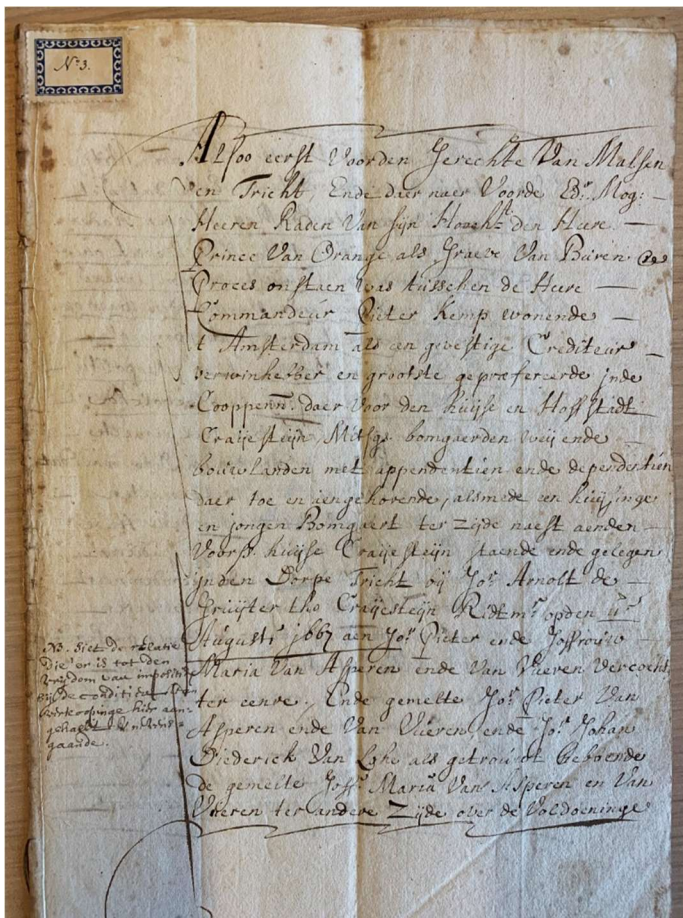 No 3.
Alsoo eerst Voorden Gerechte Van Malsen
en Tricht, Ende daer naer Voorde Ed: Mog:
Heeren Raden Van sijn Hooch:t den Heere
Prince Van Orange als Graeve Van Buren
Proces onstaen was tusschen de Heere
Commandeur Pieter Kemp wonende
t Amsterdam als een gevestige Crediteur
verwinhebber en grootste geprefereerde inde
Cooppenn: daer voor den huijse en Hoffstadt
Craijesteijn Mitsgs bomgaerden weij ende
bouwlanden met appendentien ende dependentien
daer toe en aengehorende, alsmede een huijsinge
en jongen Bomgaert ter zijde naest aenden
Voorsz. huijse Craijesteijn staende ende gelegen
inden Dorpe Tricht bij Jor Arnolt de
Gruijter tho Craijesteijn Ridtmr opden
Augusti 1667 aen Jor Pieter ende Joffrouw
Maria Van Asperen ende Van Vueren Vercocht,
ter eenre, Ende gemelte Jor Pieter Van
Asperen ende Van Vueren, ende Jor Johan
Diederick Van als getrouwt hebbende
de gemelte Joffr Maria Van Asperen en Van
Vueren ter andere Zijde over de Voldoeninge
NB. siet de relatie
die er is tot den
vrijdom van
bij de conditien
verkoopinge hier aen
gehaelt
gaande.